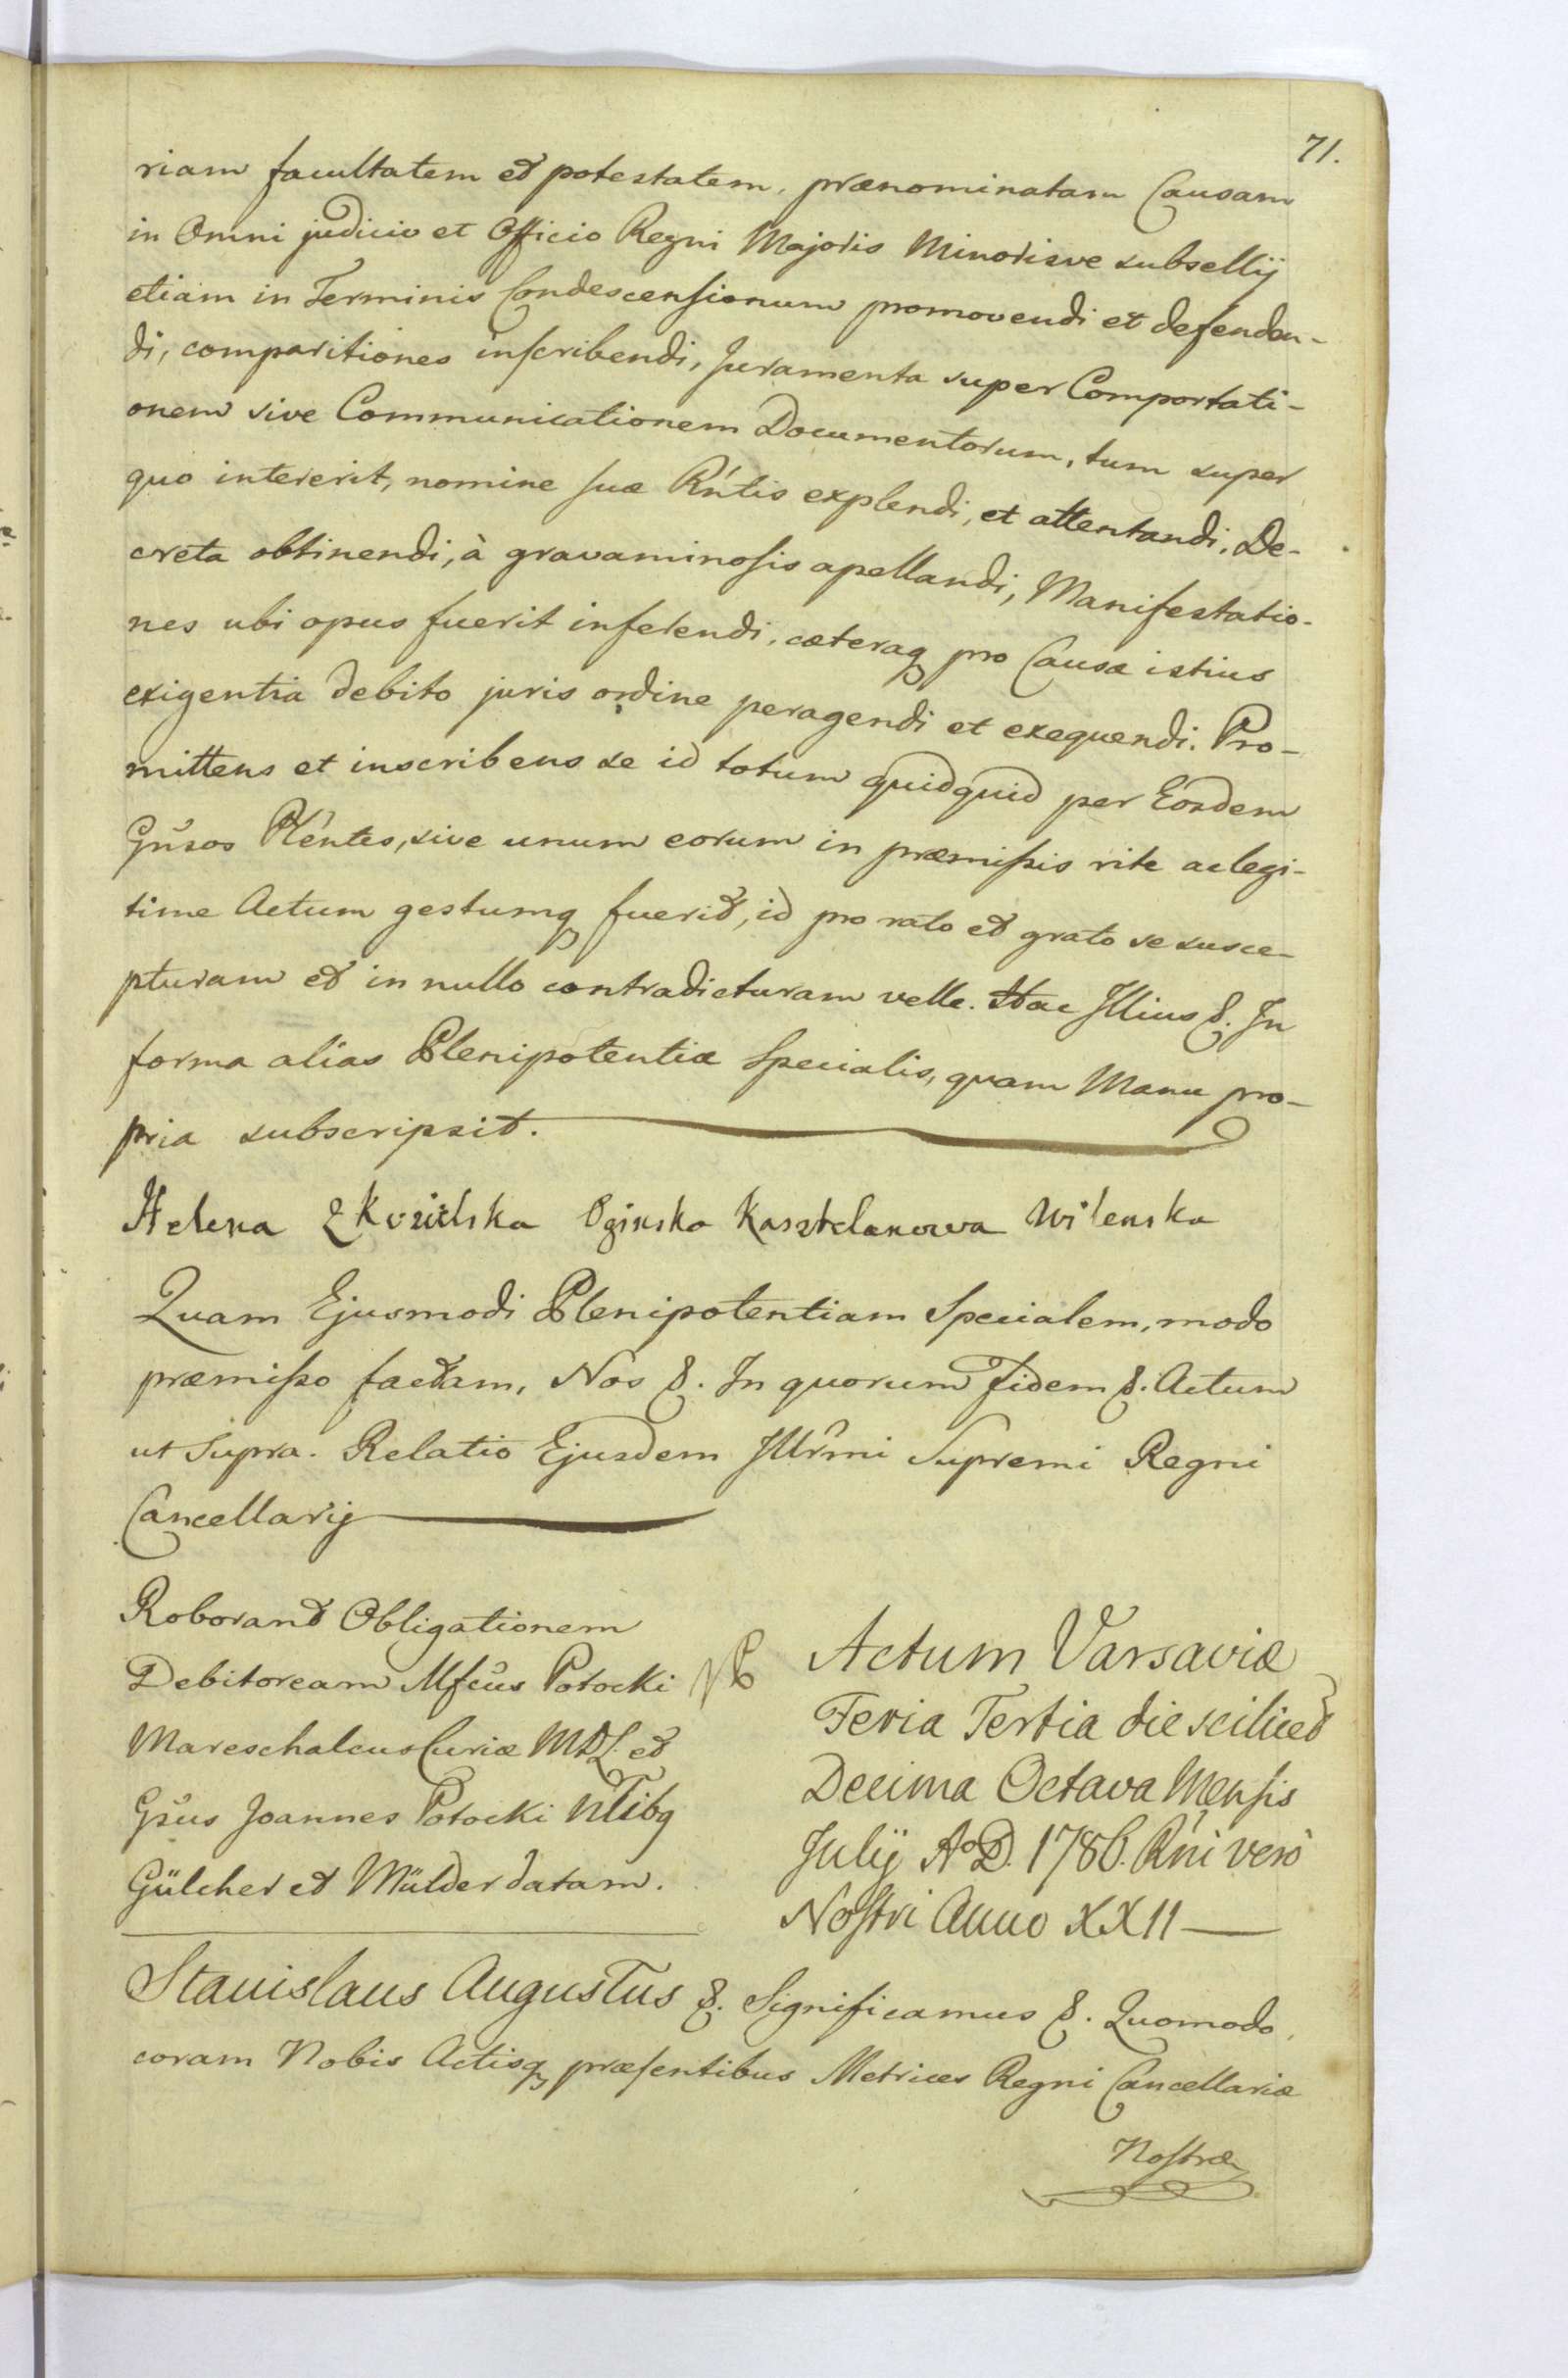 71.
riam facultatem et potestatem, prænominatam Causam
in Omni judicio et Officio Regni Majoris Minorisve subsellij
etiam in Terminis Condescensionum promovendi et defenden-
di, comparitiones inscribendi, Juramenta super Comportati-
onem sive Communicationem Documentorum, tum super
quo intererit, nomine suæ Rńtis explendi, et attentandi, De-
creta obtinendi, à gravaminosis apellandi, Manifestatio-
nes ubi opus fuerit inferendi, cæteraq pro Causæ istius
exigentia debito juris ordine peragendi et exequendi. Pro-
mittens et inscribens se id totum quidquid per Eosdem
Gńsos Pléntes, sive unum eorum in præmissis rite ac legi-
time Actum gestumq fuerit, id pro rato et grato se susce-
pturam et in nullo contradicturam velle. Hac Illius &. In
forma alias Plenipotentiæ Specialis, quam Manu pro-
pria subscripsit.
Helena Z Kozielska Oginska Kasztelanowa Wilenska
Quam Ejusmodi Plenipotentiam Specialem, modo
præmisso factam, Nos &. In quorum Fidem &. Actum
ut Supra. Relatio Ejusdem Illrmi Supremi Regni
Cancellarij
Roborant Obligationem
Debitoream Mfcus Potocki
Mareschalcus Curiæ MDL. et
Gsus Joannes Potocki NTibq
Gülcher et Mülder datam.
Actum Varsaviæ
Feria Tertia die scilicet
Decima Octava Mensis
Julij A°D. 1786. Rńi verò
Nostri Anno XXII
Stanislaus Augustus &. Significamus &. Quomodo
coram Nobis Actisq præsentibus Metrices Regni Cancellariæ
Nostræ